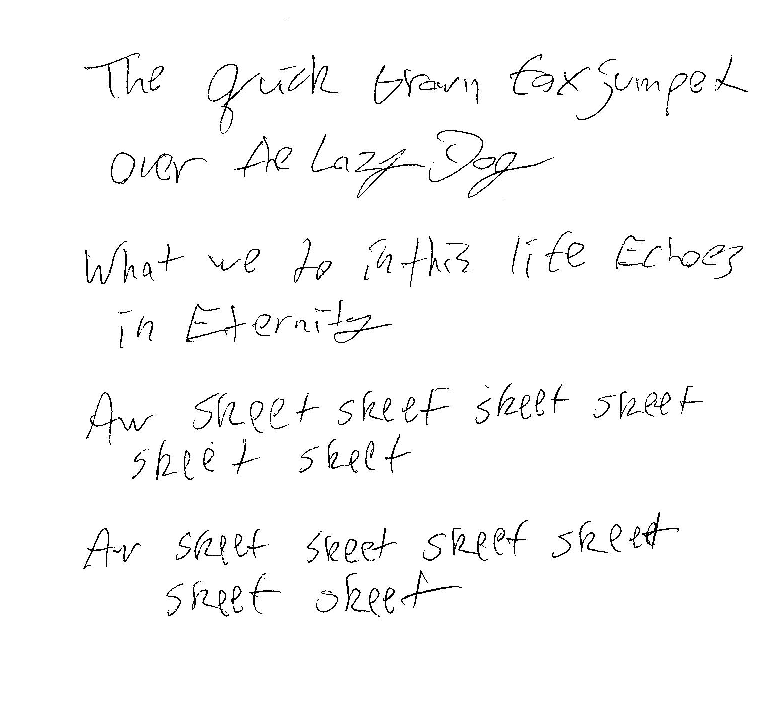 The quick brown fox jumped
over the Lazy Dog
What we do in this life Echoes
in Eternity
Aw skeet skeet skeet skeet
skeet skeet
Aw skeet skeet skeet skeet
skeet skeet